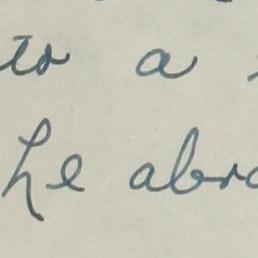 to a
he abro